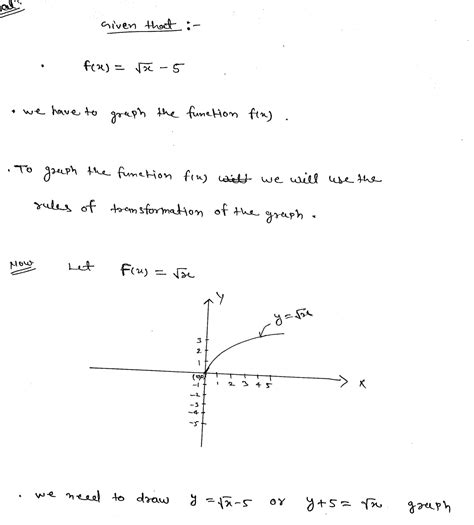 Given that :-
• f(x) = √x - 5
• we have to graph the function f(x) .
• To graph the function f(x) we will use the
rules of transformation of the graph .
Now Let F(x) = √x
Y
y = √x
3
2
1
(0,0) 1 2 3 4 5 X
-1
-2
-3
-4
-5
• we need to draw y = √x - 5 or y + 5 = √x graph